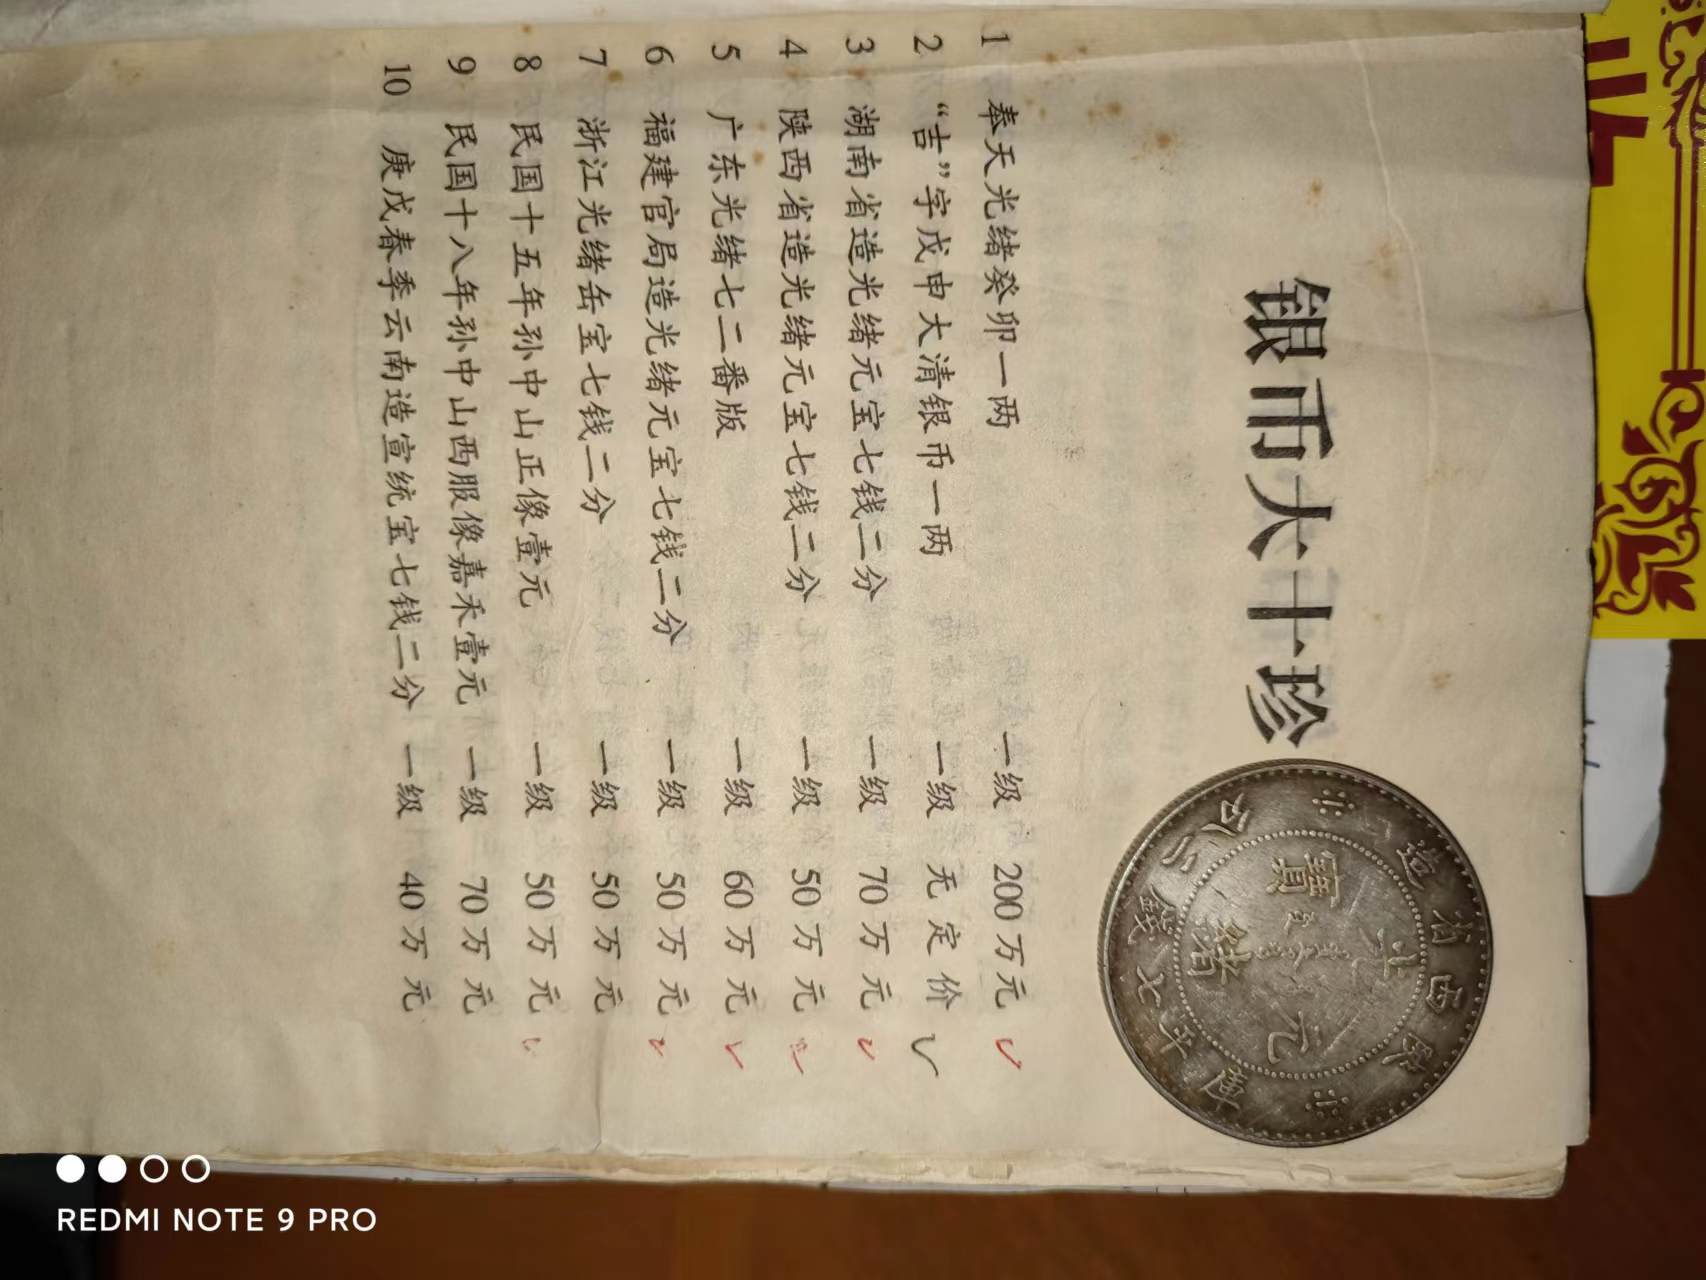 银币大十珍
1 奉天光绪癸卯一两 一级 200万元
2 “吉”字戊申大清银币一两 一级 无定价
3 湖南省造光绪元宝七钱二分 一级 70万元
4 陕西省造光绪元宝七钱二分 一级 50万元
5 广东光绪七二番版 一级 60万元
6 福建官局造光绪元宝七钱二分 一级 50万元
7 浙江光绪缶宝七钱二分 一级 50万元
8 民国十五年孙中山正像壹元 一级 50万元
9 民国十八年孙中山西服像嘉禾壹元 一级 70万元
10 庚戌春季云南造宣统宝七钱二分 一级 40万元
陕西省造
光緒元寶
庫平七錢二分
REDMI NOTE 9 PRO